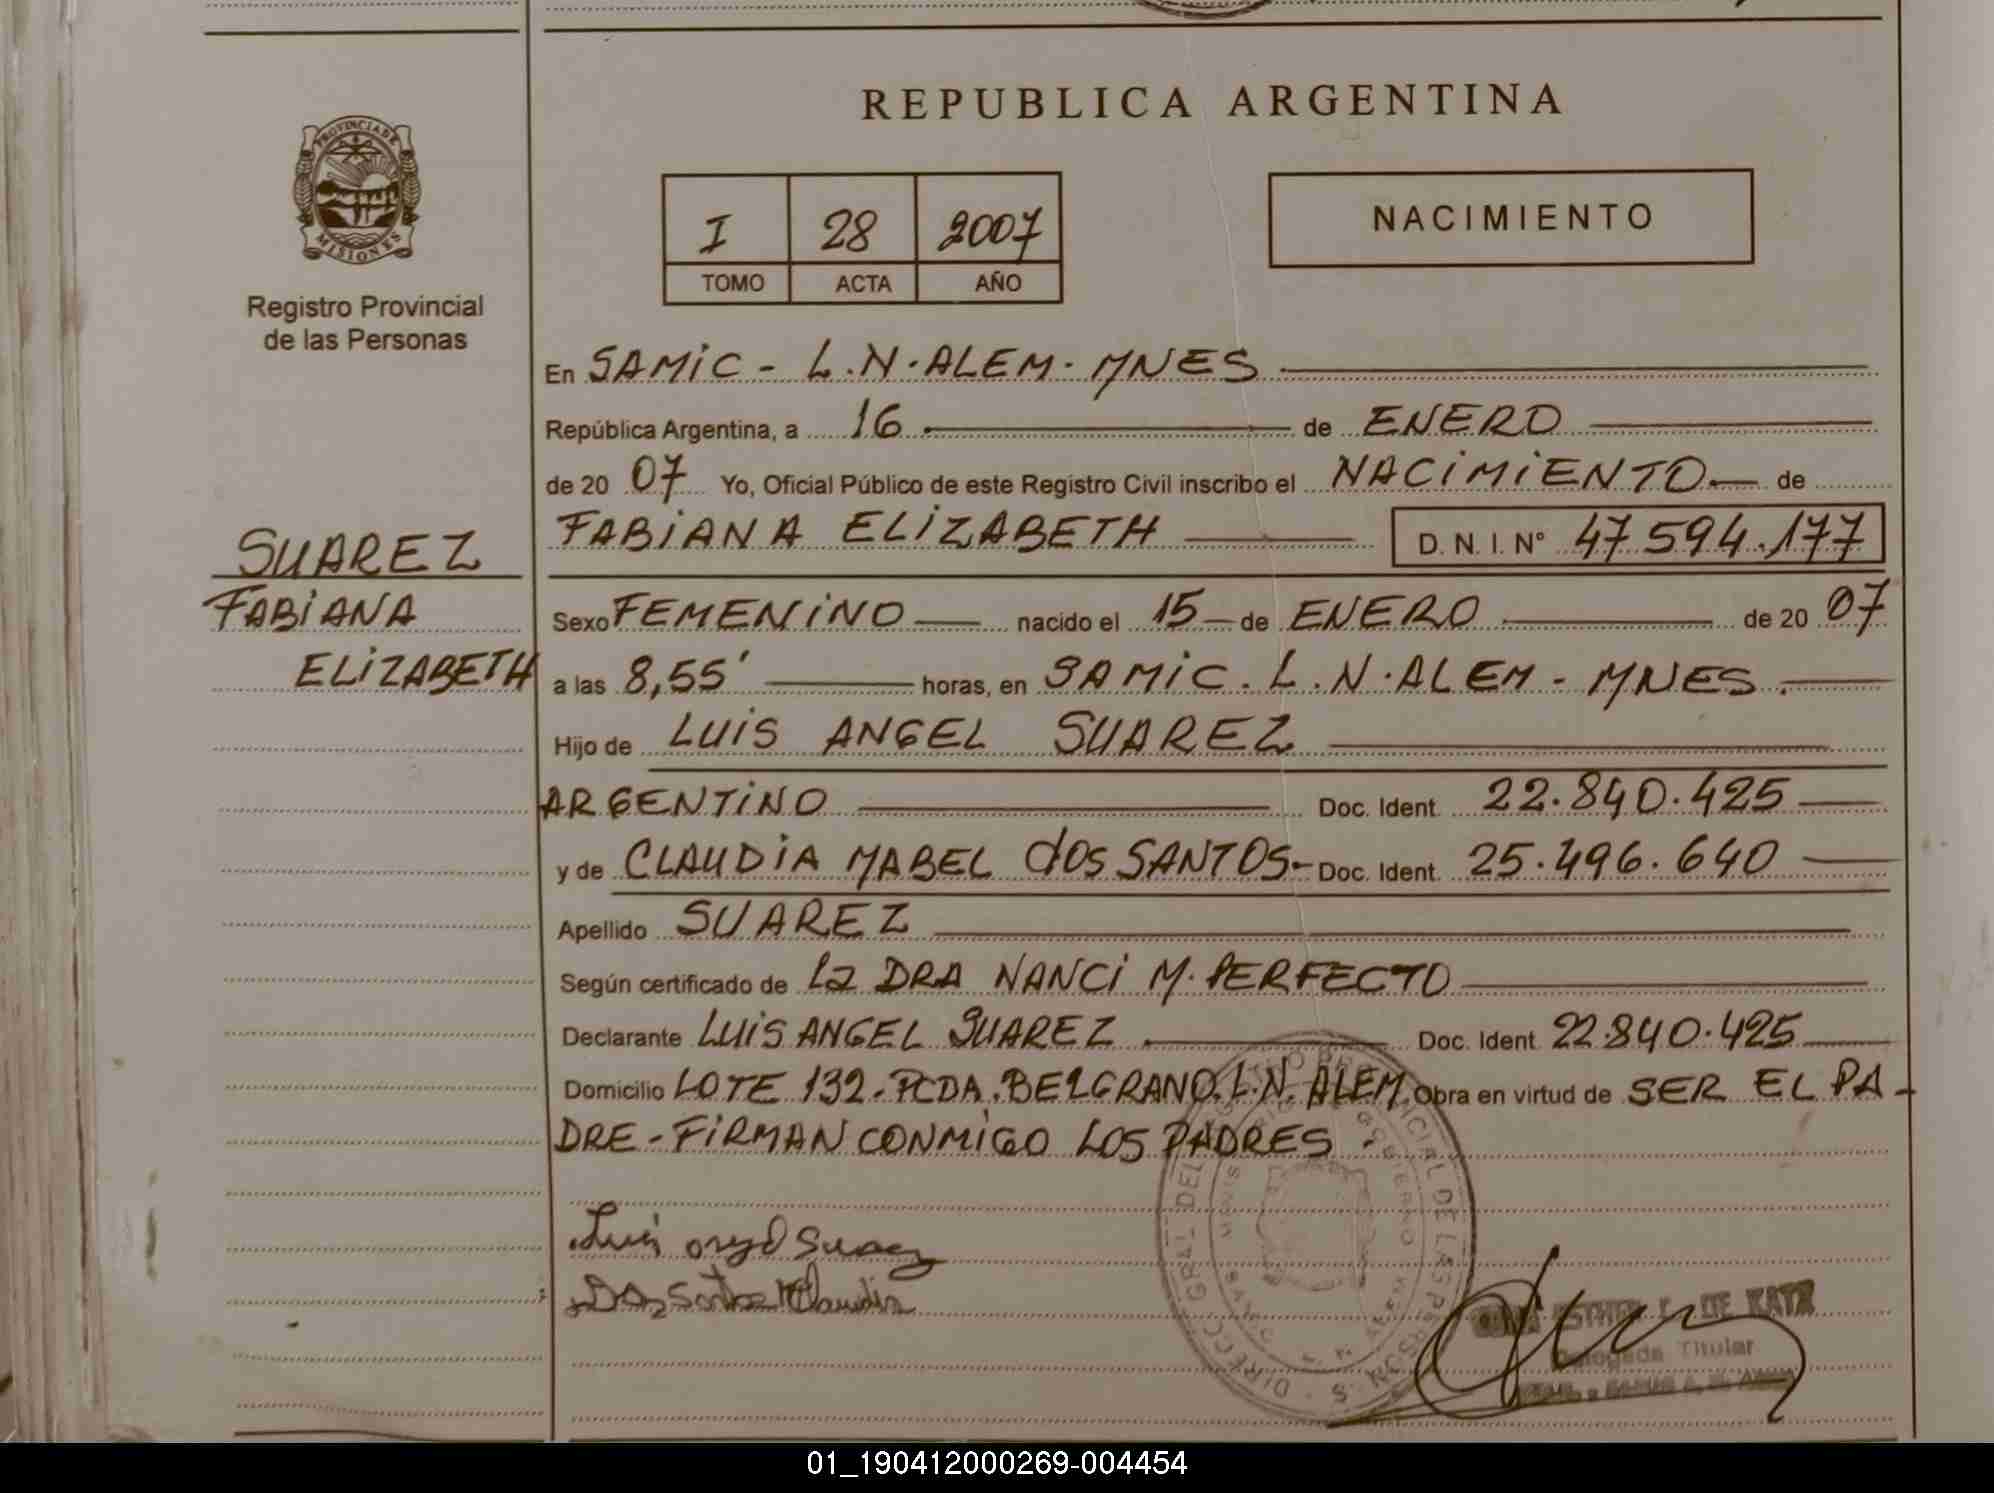 REPUBLICA ARGENTINA
PROVINCIA DE
MISIONES
Registro Provincial
de las Personas
I 28 2007
TOMO ACTA AÑO
NACIMIENTO
En SAMIC - L.N. ALEM - MNES
República Argentina, a 16 de ENERO
de 20 07 Yo, Oficial Público de este Registro Civil inscribo el NACIMIENTO de
FABIANA ELIZABETH D. N. I. N° 47 594.177
SUAREZ
FABIANA
ELIZABETH
Sexo FEMENINO nacido el 15 de ENERO de 20 07
a las 8,55' horas, en SAMIC. L.N. ALEM - MNES.
Hijo de LUIS ANGEL SUAREZ
ARGENTINO Doc. Ident. 22.840.425
y de CLAUDIA MABEL dOS SANTOS - Doc. Ident. 25.496.640
Apellido SUAREZ
Según certificado de La DRA NANCI M. PERFECTO
Declarante LUIS ANGEL SUAREZ Doc. Ident. 22.840.425
Domicilio LOTE 132 - PCDA. BELGRANO. L.N. ALEM. Obra en virtud de SER EL PA-
DRE - FIRMAN CONMIGO LOS PADRES.
Luis Suarez
Dos Santos Claudia
ESTHER DE
Delegada Titular
01_190412000269-004454